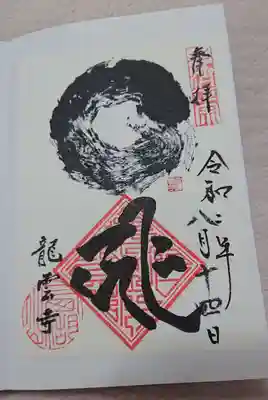 奉拝
令和二年
八月十四日
龍
龍雲寺